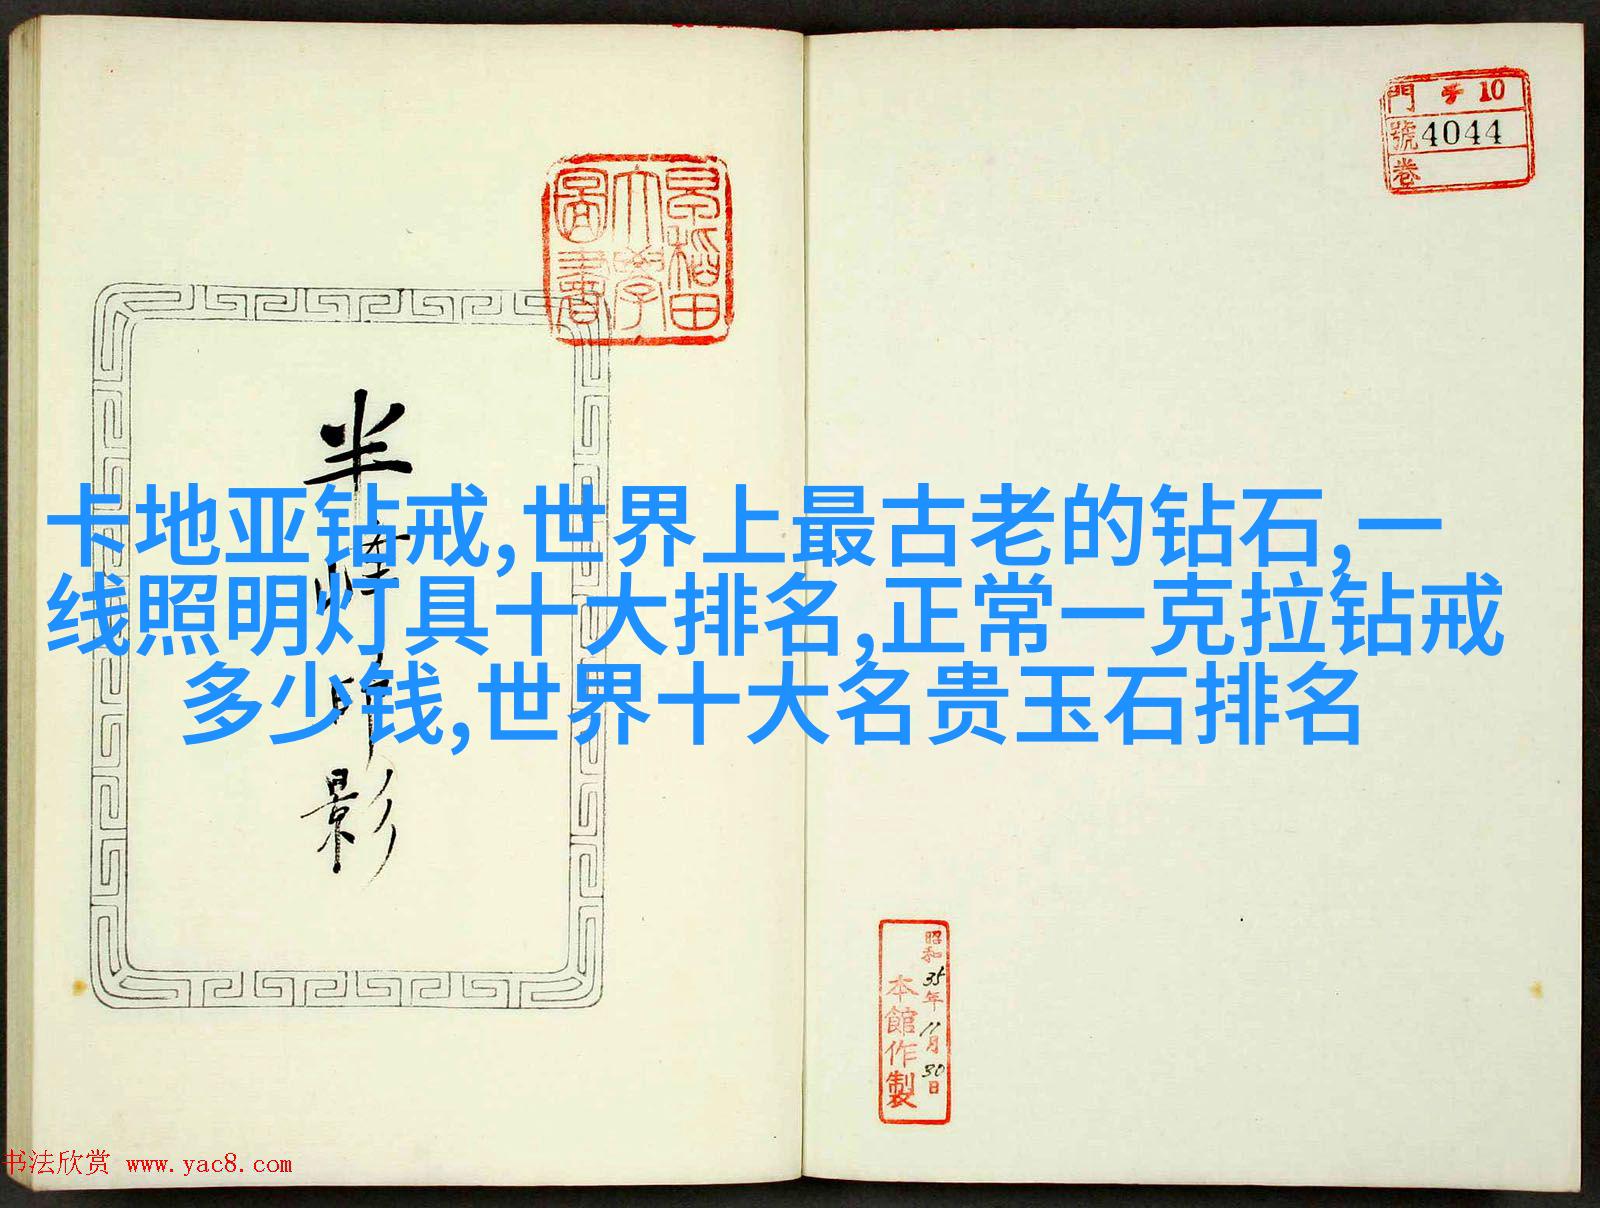 門 チ 10
號 4044
卷
早稻田
大學
圖書
半
影
卡地亚钻戒,世界上最古老的钻石,一
线照明灯具十大排名,正常一克拉钻戒
多少钱,世界十大名贵玉石排名
昭和35年11月30日
本館作製
书法欣赏 www.yac8.com